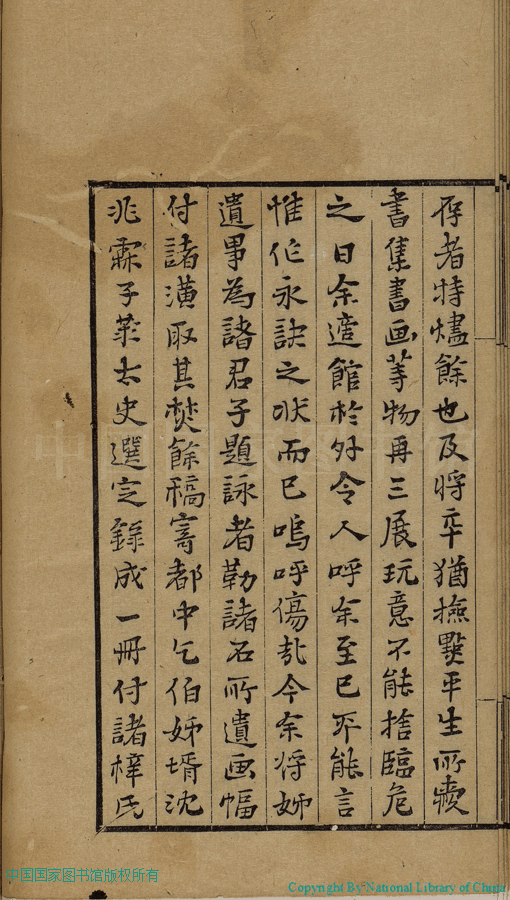 存者特燼餘也及將卒猶撫𭸌平生所讀
書集書画䓁物再三展玩意不能捨臨危
之日余適館於外令人呼余至已不能言
惟作永訣之狀而已嗚呼傷哉今余将姊
遺事為諸君子題詠者勒諸石所遺画幅
付諸潢取其焚餘稿寄都中乞伯姊壻沈
兆霖子菉太史選定錄成一冊付諸梓氏
中国国家图书馆版权所有
Copyright By National Library of China